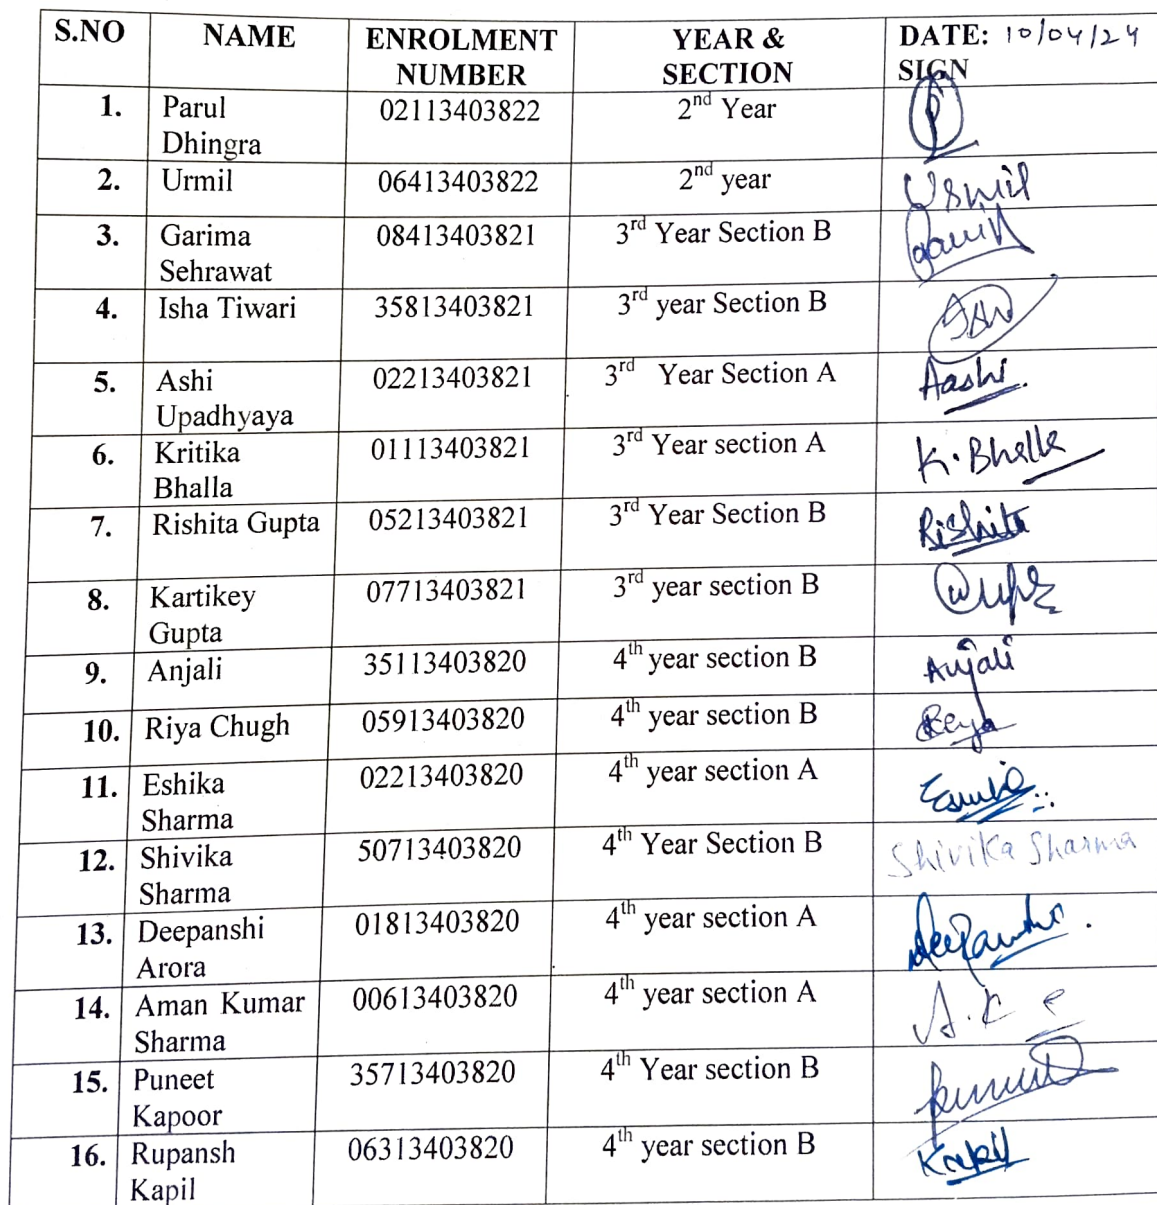 S.NO NAME ENROLMENT NUMBER YEAR & SECTION DATE: 10/04/24 SIGN
1. Parul Dhingra 02113403822 2nd Year
2. Urmil 06413403822 2nd year Urmil
3. Garima Sehrawat 08413403821 3rd Year Section B
4. Isha Tiwari 35813403821 3rd year Section B
5. Ashi Upadhyaya 02213403821 3rd Year Section A Aashi.
6. Kritika Bhalla 01113403821 3rd Year section A K. Bhalla
7. Rishita Gupta 05213403821 3rd Year Section B Rishita
8. Kartikey Gupta 07713403821 3rd year section B
9. Anjali 35113403820 4th year section B Anjali
10. Riya Chugh 05913403820 4th year section B
11. Eshika Sharma 02213403820 4th year section A
12. Shivika Sharma 50713403820 4th Year Section B Shivika Sharma
13. Deepanshi Arora 01813403820 4th year section A Deepanshi.
14. Aman Kumar Sharma 00613403820 4th year section A
15. Puneet Kapoor 35713403820 4th Year section B
16. Rupansh Kapil 06313403820 4th year section B